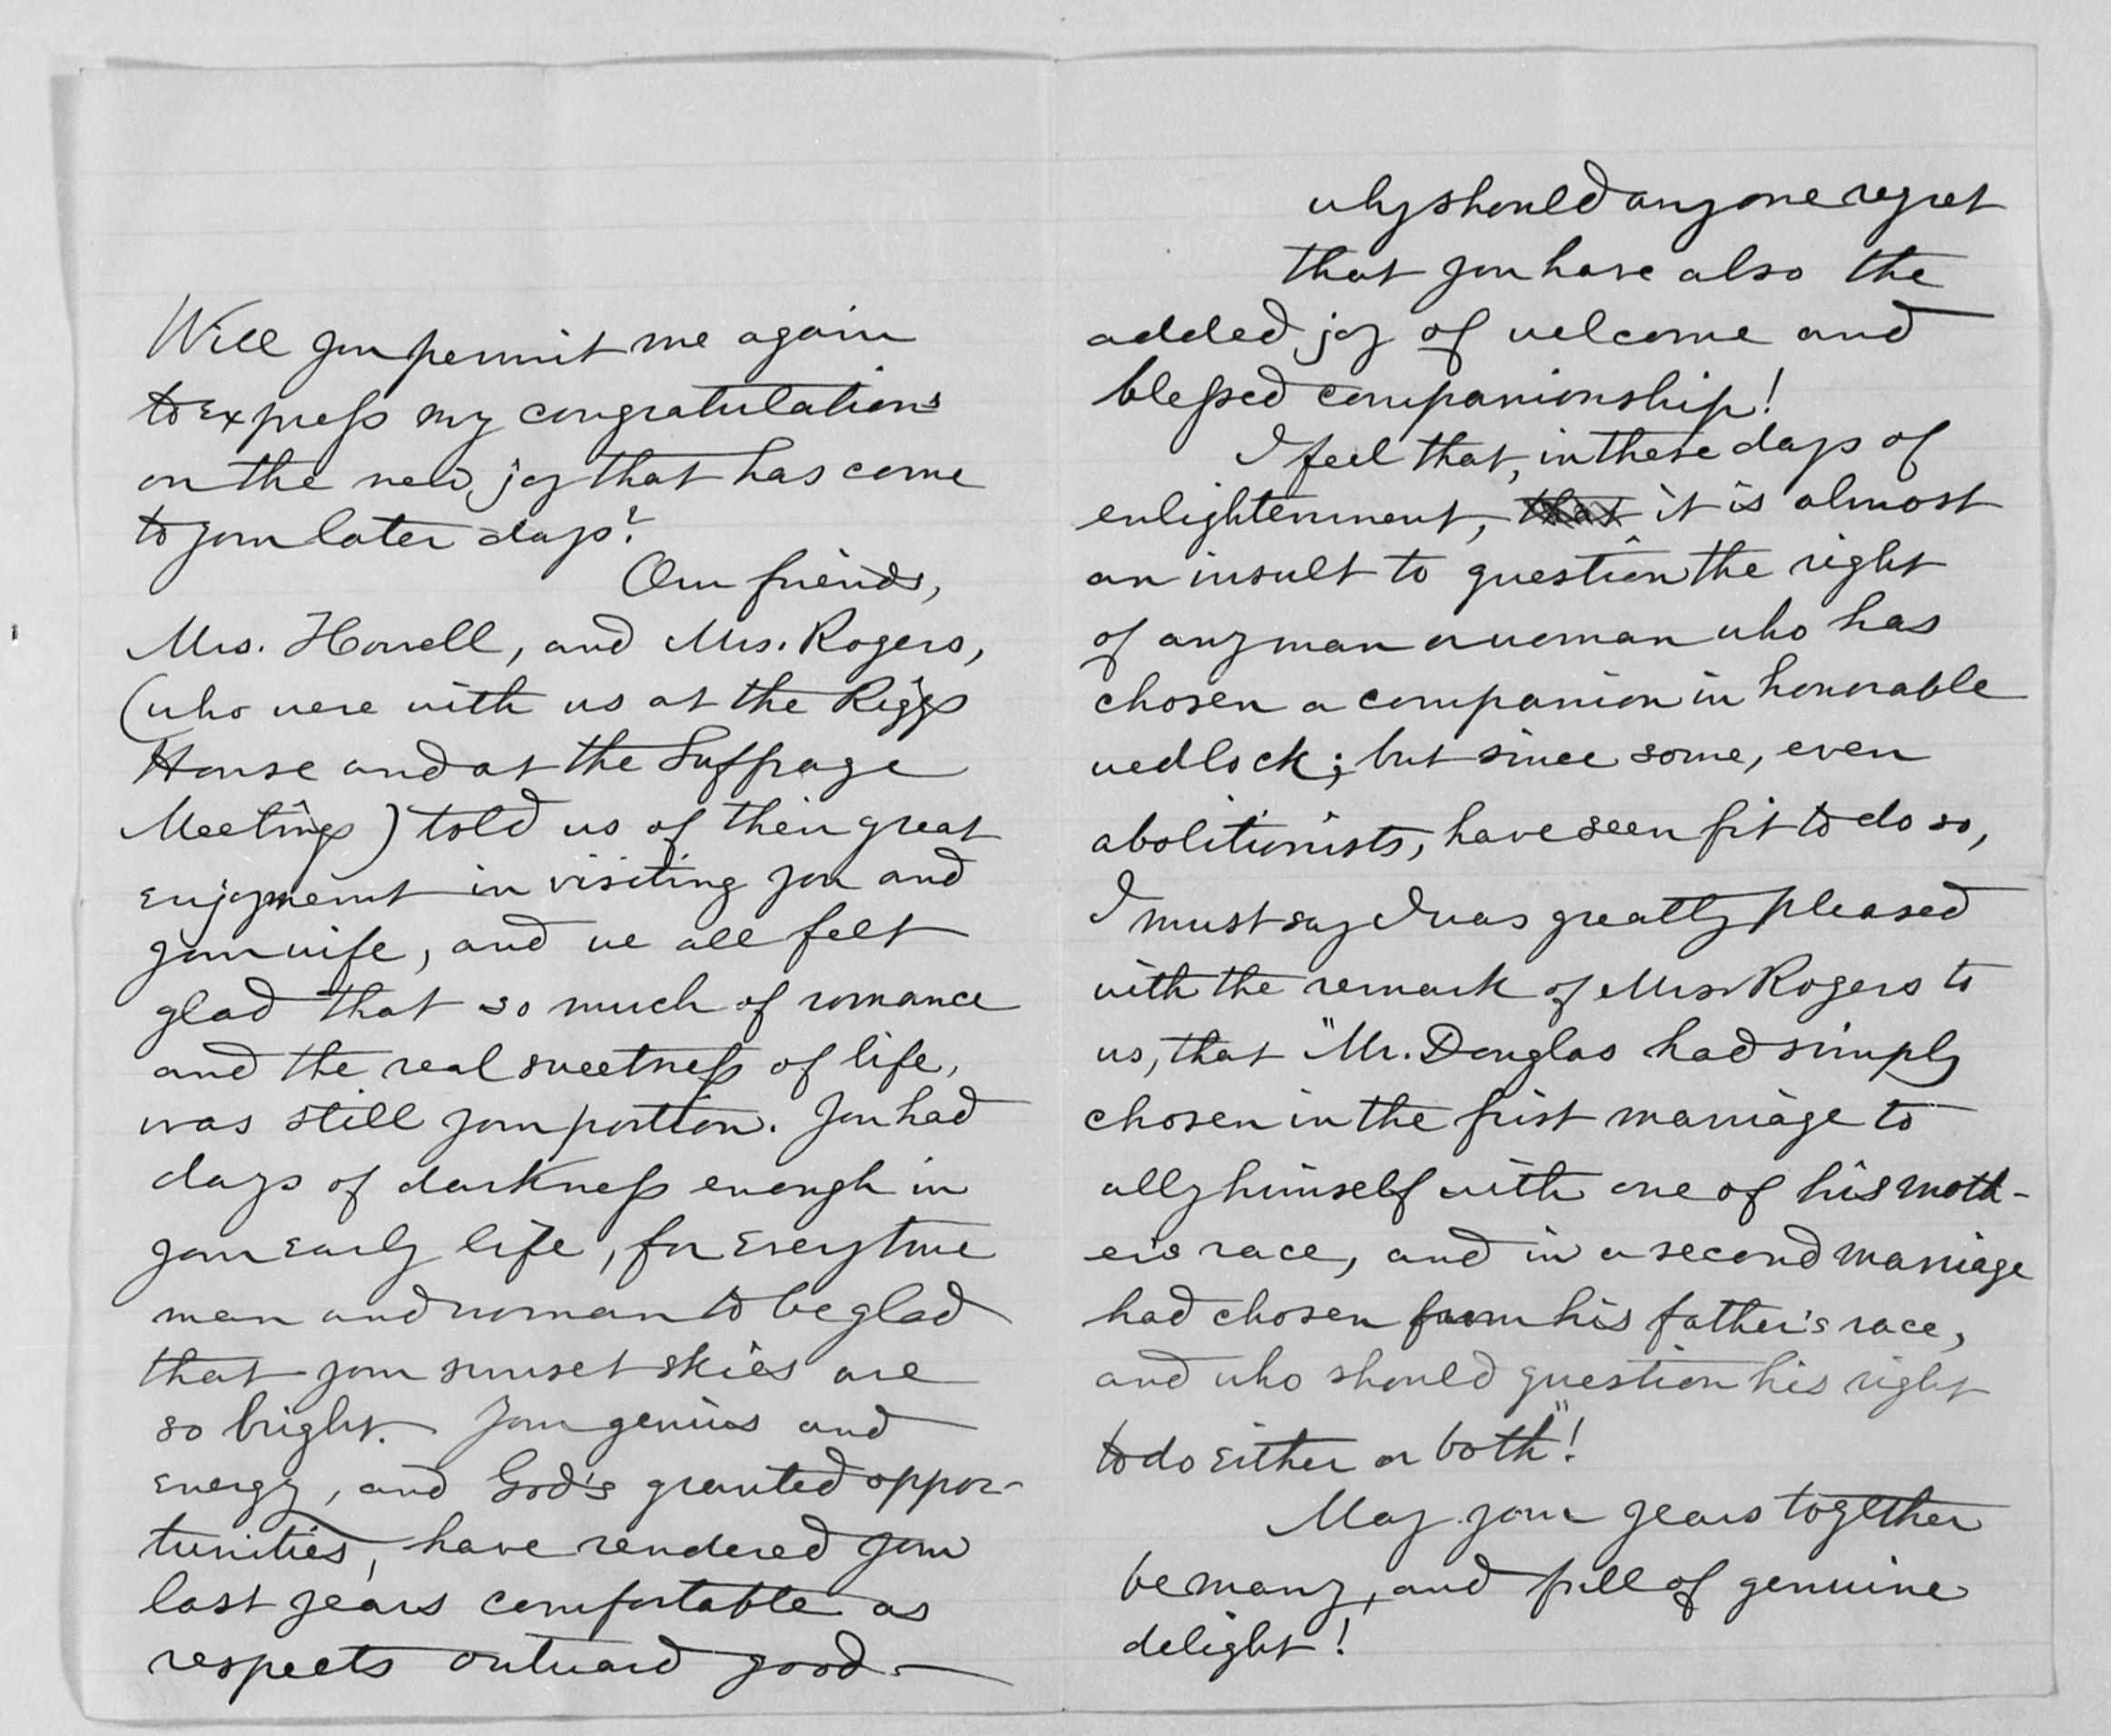 Will you permit me again
to express my congratulations
on the new joy that has come
to your later days?
Our friends,
Mrs. Howell, and Mrs. Rogers,
(who were with us at the Riggs
House and at the Suffrage
Meetings) told us of their great
enjoyment in visiting you and
your wife, and we all felt
glad that so much of romance
and the real sweetness of life,
was still your portion. You had
days of darkness enough in
your early life, for every true
man and woman to be glad
that your sunset skies are
so bright. Your genius and
energy, and God's granted oppor-
tunities, have rendered your
last years comfortable as
respects outward good —
why should anyone regret
that you have also the
added joy of welcome and
blessed companionship!
I feel that, in these days of
enlightenment, that it is almost
an insult to question the right
of any man or woman who has
chosen a companion in honorable
wedlock; but since some, even
abolitionists, have seen fit to do so,
I must say I was greatly pleased
with the remark of Mrs. Rogers to
us, that "Mr. Douglas had simply
chosen in the first marriage to
ally himself with one of his moth-
er's race, and in a second marriage
had chosen from his father's race,
and who should question his right
to do either or both"!
May your years together
be many, and full of genuine
delight!